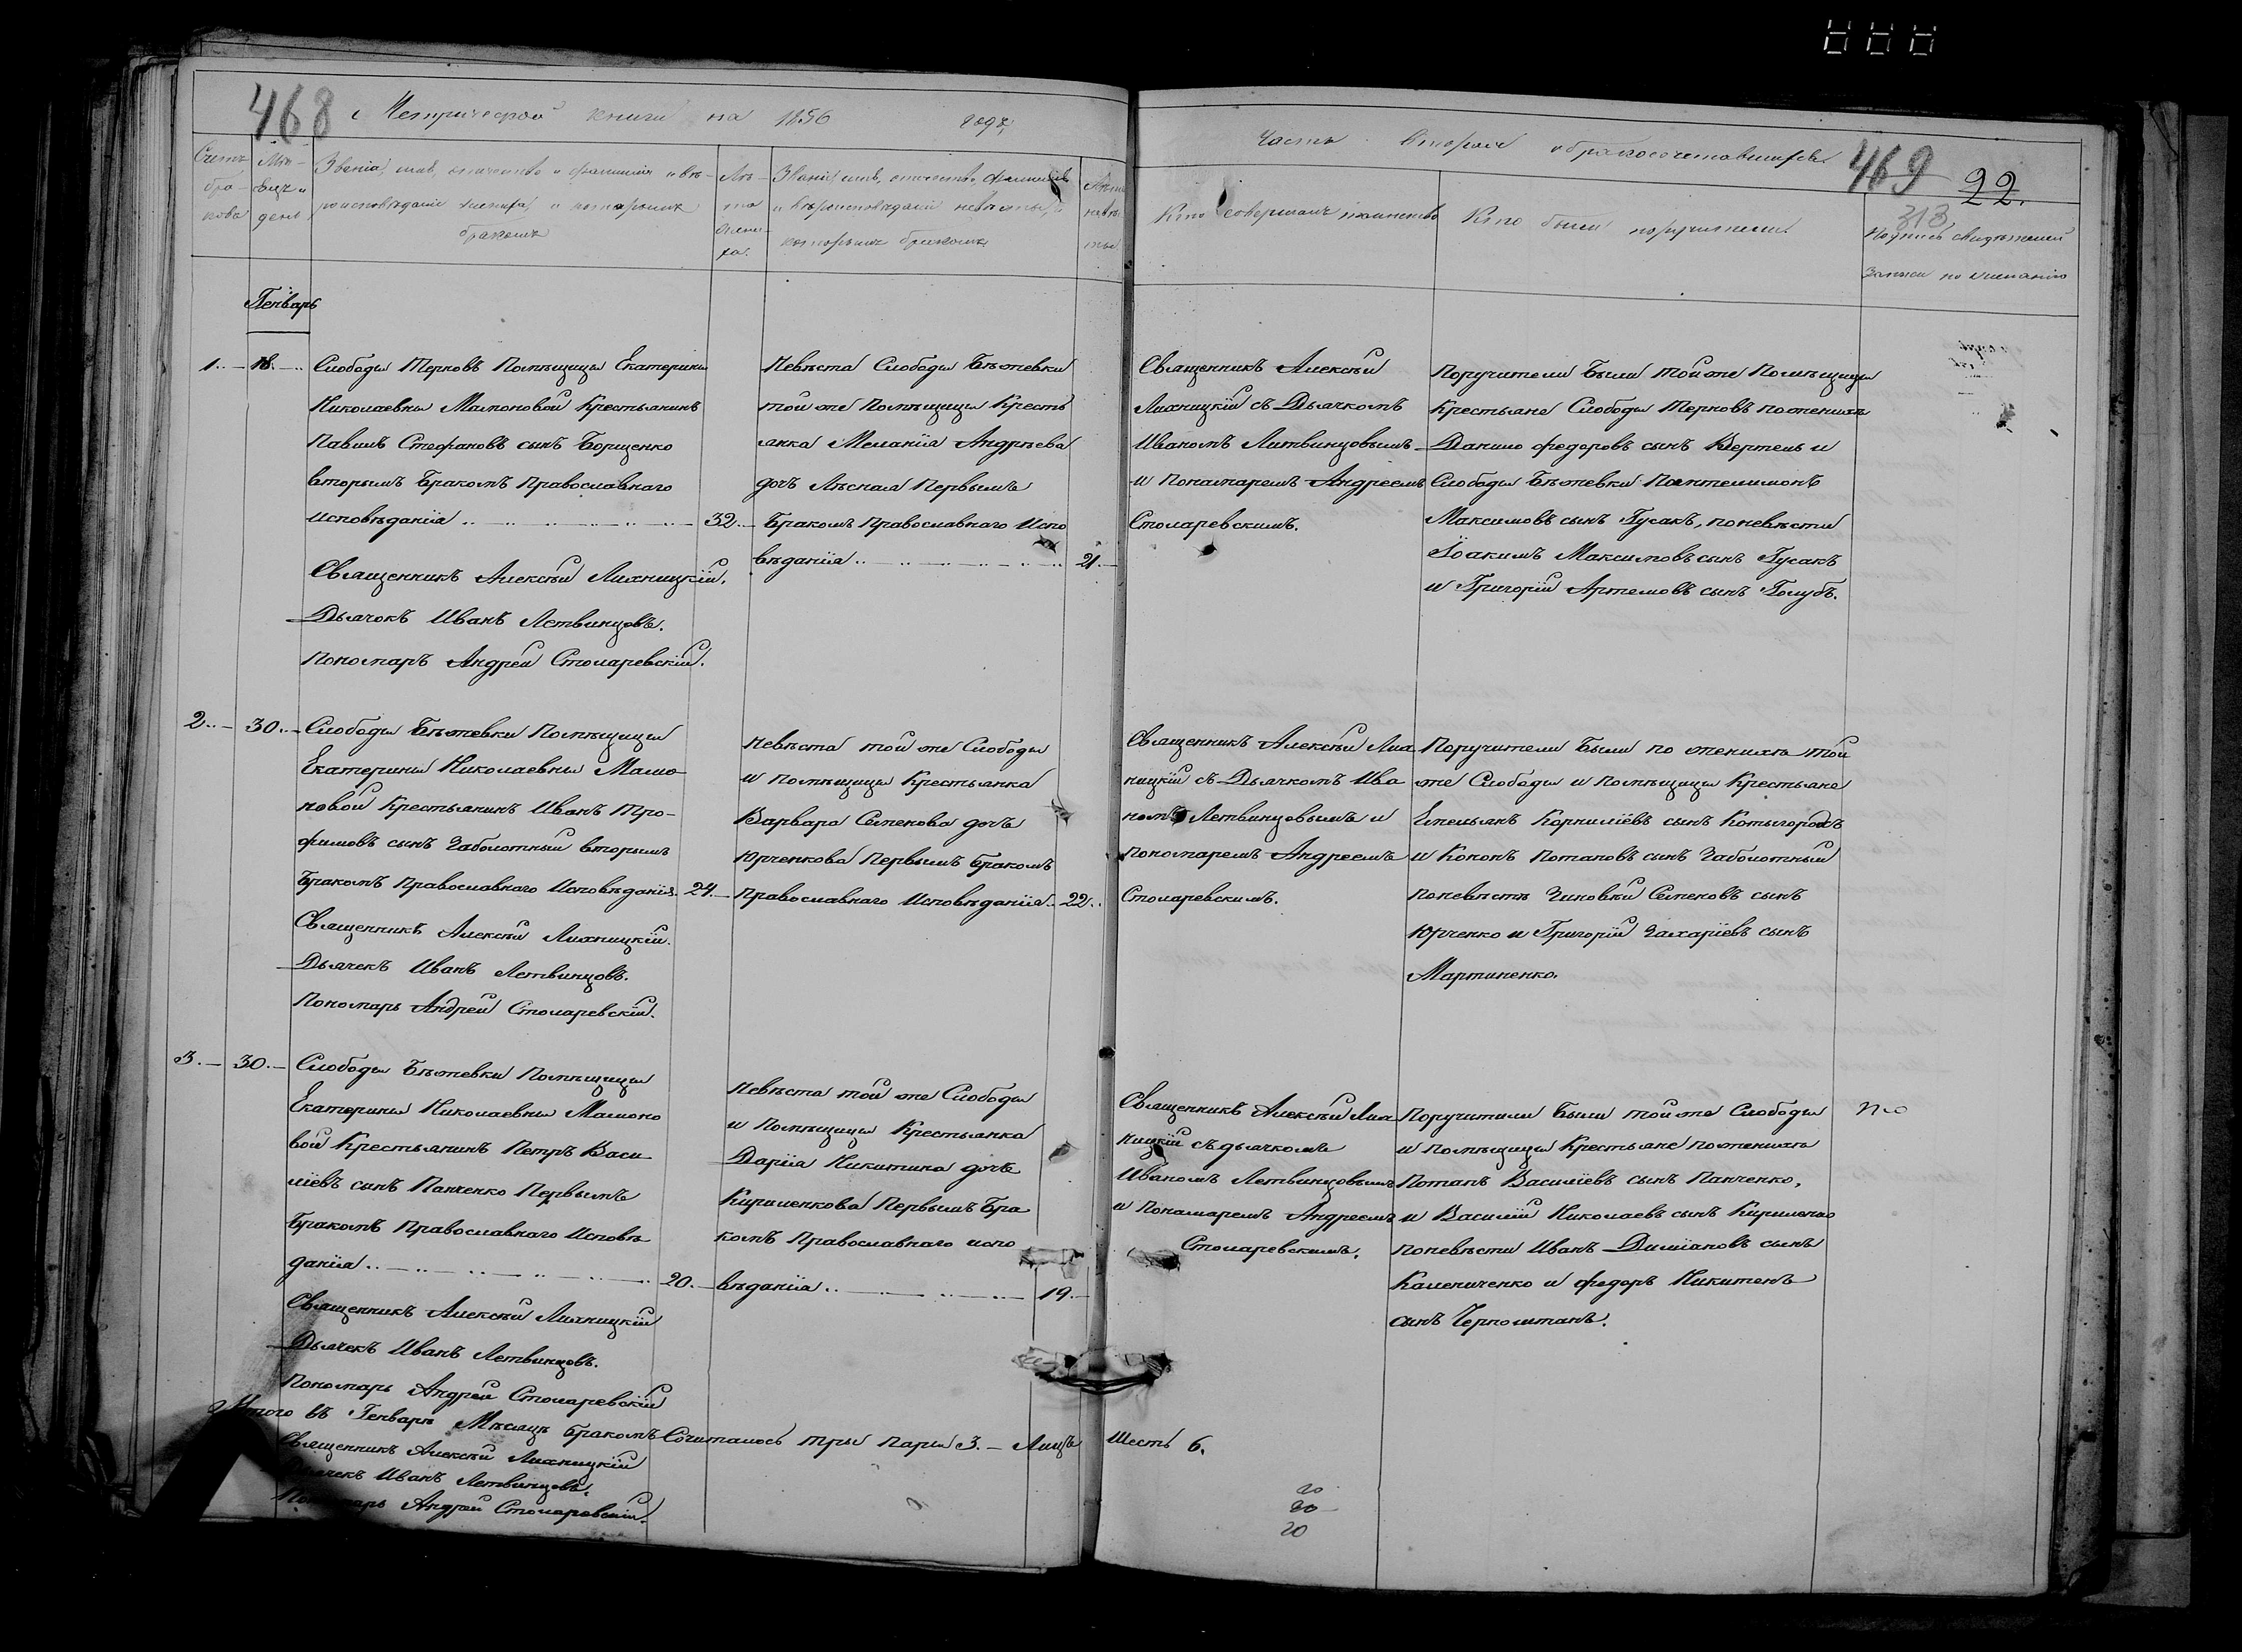 468
Метрической книги на 1856 годъ,
Часть Вторая о бракосочетавшихся.
469
22.
313
Счетъ
бра-
ковъ
Мѣ-
сяцъ и
день
Званіе, имя, отчество и фамилія и вѣ-
роисповѣданіе жениха, и которымъ
бракомъ
Лѣ-
та
жени-
ха.
Званіе, имя, отчество, фамилія
и вѣроисповѣданіе невѣсты, и
которымъ бракомъ
Лѣта
невѣс
ты
Кто совершалъ таинство
Кто были поручители
Подпись свидѣтелей
записи по желанію
Генварь
1..
18..
Слободы Терновъ Помѣщицы Екатерины
Николаевны Мамоновой Крестьянинъ
Павилъ Стефановъ сынъ Борщенко
вторымъ Бракомъ Православнаго
исповѣданїя
32
Священникъ Алексѣй Лихницкїй.
Дьячокъ Иванъ Летвинцовъ.
Пономаръ Андрей Столаревскїй.
Невѣста Слободы Бѣжевки
той же Помѣщицы Кресть
янка Меланїя Андрѣева
дочъ Лѣсная Первымъ
Бракомъ Православнаго Испо
вѣданїя..
21
Священникъ Алексѣй
Лихницкїй съ Дьячкомъ
Иваномъ Литвинцовымъ
и Понамаремъ Андреемъ
Столаревскимъ.
Поручители Были той же Помѣщицы
Крестьяне Слободы Терновъ по женихѣ
Данило федоровъ сынъ Вертель и
Слободы Бѣжевки Пантелимонъ
Максимовъ сынъ Гусакъ, по невѣсти
Їоакимъ Максимовъ сынъ Гусакъ
и Григорїй Артемовъ сынъ Голубъ.
2..
30..
Слободы Бѣжевки Помѣщицы
Екатерины Николаевны Мамо-
новой Крестьянинъ Иванъ Тро-
фимовъ сынъ Заболотный вторымъ
Бракомъ Православнаго Исповѣданїя.
24.
Священникъ Алексѣй Лихницкїй.
Дьячекъ Иванъ Летвинцовъ.
Пономарь Андрей Столаревскїй.
Невѣста той же Слободы
и помѣщицы Крестьянка
Варвара Семенова дочь
Юрченкова Первымъ Бракомъ
Православнаго Исповѣданїя..
22..
Священникъ Алексѣй Лих
ницкїй съ Дьячкомъ Ива
номъ Летвинцовымъ и
Пономаремъ Андреемъ
Столаревскимъ.
Поручители Были по женихѣ той
же Слободы и помѣщицы Крестьяне
Емельянъ Корнилїевъ сынъ
и Кононъ Потаповъ сынъ Заболотный
по невѣстѣ Зиновѣй Семеновъ сынъ
Юрченко и Григорїй Захарїевъ сынъ
Мартиненко.
3.
30.
Слободы Бѣжевки Помѣщицы
Екатерины Николаевны Мамоно
вой Крестьянинъ Петръ Васи
лїевъ сынъ Панченко Первымъ
Бракомъ Православнаго Исповѣ
данїя..
20.
Священникъ Алексѣй Лихницкїй
Дьячекъ Иванъ Летвинцовъ.
Пономарь Андрей Столаревскїй
Невѣста той же Слободы
и Помѣщицы Крестьянка
Дарїя Никитина дочь
Кириленкова Первымъ Бра
комъ Православнаго испо
вѣданїя..
19.
Священникъ Алексѣй Лих
ницкїй съ дьячкомъ
Иваномъ Летвинцовымъ
и Понамаремъ Андреемъ
Столаревскимъ.
Поручители Были той же Слободы
и помѣщицы Крестьяне по женихѣ
Потапъ Василїевъ сынъ Панченко,
и Василїй Николаевъ сынъ Кириленко
по невѣсти Иванъ Дамїановъ сынъ
Калениченко и федоръ Никитенъ
сынъ Черноштанъ.
Итого въ Генварѣ Мѣсяцѣ Бракомъ Сочиталось три пары 3. — Лицъ Шесть 6.
Священникъ Алексѣй Лихницкїй
Дьячекъ Иванъ Летвинцовъ.
Пономарь Андрей Столаревскїй.
20
20
20